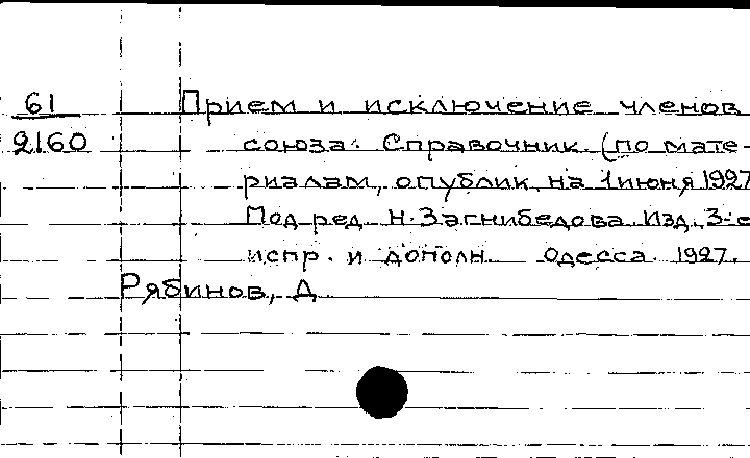 61
2160
Прием и исключение членов
союза. Справочник. (по мате-
риалам, опублик. на 1 июня 1927
Под ред. Н. Загнибедова. Изд. 3-е
испр. и дополн. Одесса. 1927.
Рябинов, Д